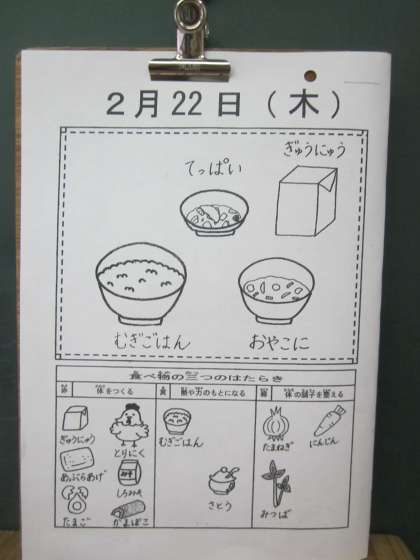 2月22日(木)
ぎゅうにゅう
てっぱい
むぎごはん
おやこに
食べ物の三つのはたらき
赤 体をつくる
黄 熱や力のもとになる
緑 体の調子を整える
ぎゅうにゅう
とりにく
むぎごはん
たまねぎ
にんじん
あぶらあげ
しろみそ
さとう
みつば
たまご
かまぼこ